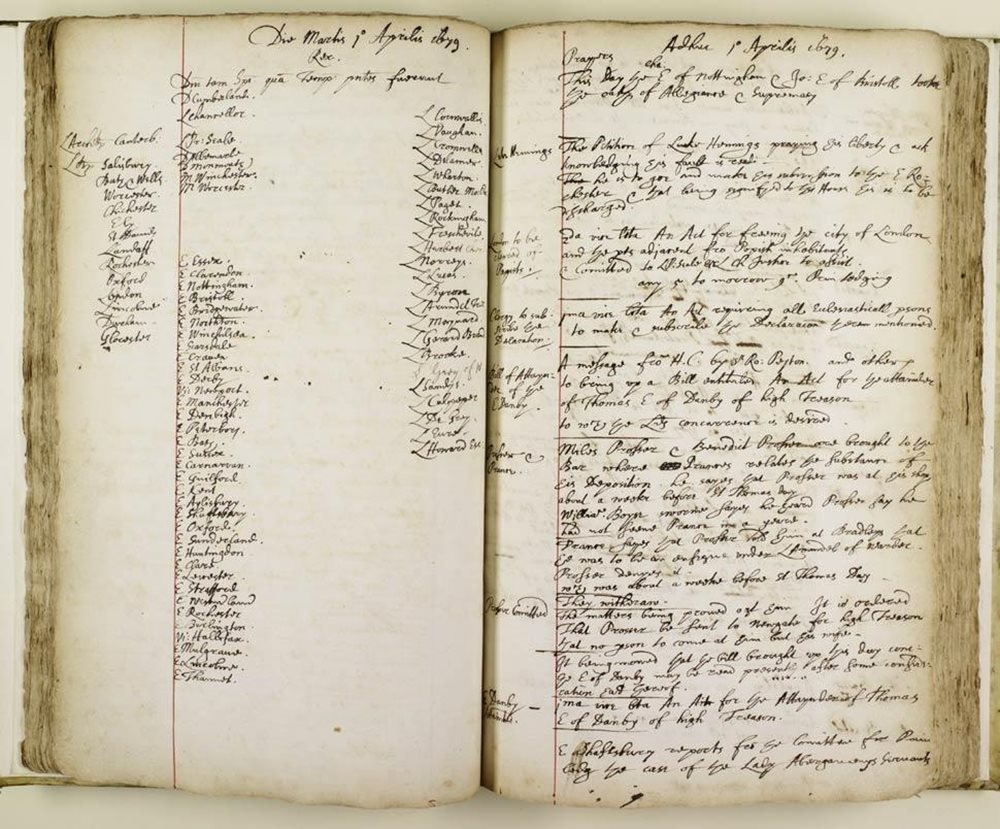 Die Martis 1° Aprilis 1679.
Rex.
Dni tam quam Temp: pntes fuerunt
D Cumberland.
L Chancellor.
L Arch: Canterb:
L Bp Salisbury.
Bath & Wells
Worcester.
Chichester
Ely
St Asaph
Landaff
Rochester
Oxford
London
Lincolne
Durham
Glocester
Pr: Seale
D Albemarle
D Monmouth
M Winchester.
M Worcester.
E Essex.
E Clarendon
E Nottingham.
E Bristoll
E Bridgewater
E Northton.
E Winchilsea.
E Carsdale
E Craven
E St Albans.
E Derby
Vi: Newport.
E Manchester
E Denbigh.
E Peterborg.
E Bath.
E Sussex.
E Carnarvan.
E Guilford.
E Kent
E Aylisbury.
E Shaftesbury
E Oxford.
E Sunderland.
E Huntingdon
E Clare
E Leicester.
E Strafford
E Westmorland
E Rochester
E Burlington.
Vi: Hallifax.
E Mulgrave.
E Lincolne.
E Thannet.
L Cornwallis
L Vaughan.
L Cromwell
L Delamer.
L Wharton.
L Butler
L Paget.
L Rockingham
L Freshevile
L Herbert
L Norreys.
L Lucas.
L Byron
L Arundel
L Maynard
L Gerard
L Brooke.
L Grey of
L Sandys.
L Colepeper
L De Grey
L Eure.
L Howard
Adhuc 1° Aprilis 1679.
Prayers
This Day the E of Nottingham & Jo: E of Bristoll tooke
the oaths of Allegiance & Supremacy
Hemings
The Petition of Luke Hemings praying his liberty & ack
knowledging his fault is read
Then he is to goe and make his submission to the E Ro:
chester & that being signifyed to the House he is to be
discharged.
London to be
cleared of
Papists.
2a vice lcta An Act for freeing the city of London
and the pts adjacent fro Popish inhabitants
Comitted to
any 5 to morrow 9° Prin lodging
Clergy to sub-
scribe the
Declaration.
1ma vice lcta An Act requireing all Ecclesiasticall psons
to make & subscribe the Declaracon therein mentioned.
Bill of Attayn-
der of the
E Danby.
A message fro H. C. by Sr Ro: Peyton and others
to bring up a Bill entituled An Act for the attainder
of Thomas E of Danby of high Treason
to wch the Lds concurrence is desired
Prosser &
Prance.
Miles Prosser & Benedict Prosser were brought to the
Bar where Prance relates the substance of
his Deposition. he sayes that Prosser was at his shop
about a weeke before St Thomas day
William Boyse sworne sayes he heard Prosser say he
had not seene Prance in a yeare.
Prance sayes that Prosser told him at Bradleys that
he was to be an ensigne under L Arundel of Warder.
Prosser denyes it
wch was about a weeke before St Thomas Day
They withdraw.
Prosser Comitted
The matters being proved agt him It is ordered
That Prosser be sent to Newgate for high Treason
that no pson to come at him but his wife.
It being moved that the bill brought up this day conc-
the E of Danby may be read presently after some conside-
ration had thereof.
E Danby
1ma vice lcta An Act for the Attaynder of Thomas
E of Danby of high Treason.
E Shaftesbury reports fro the Comittee for
the case of the Lady Abergavenys servants